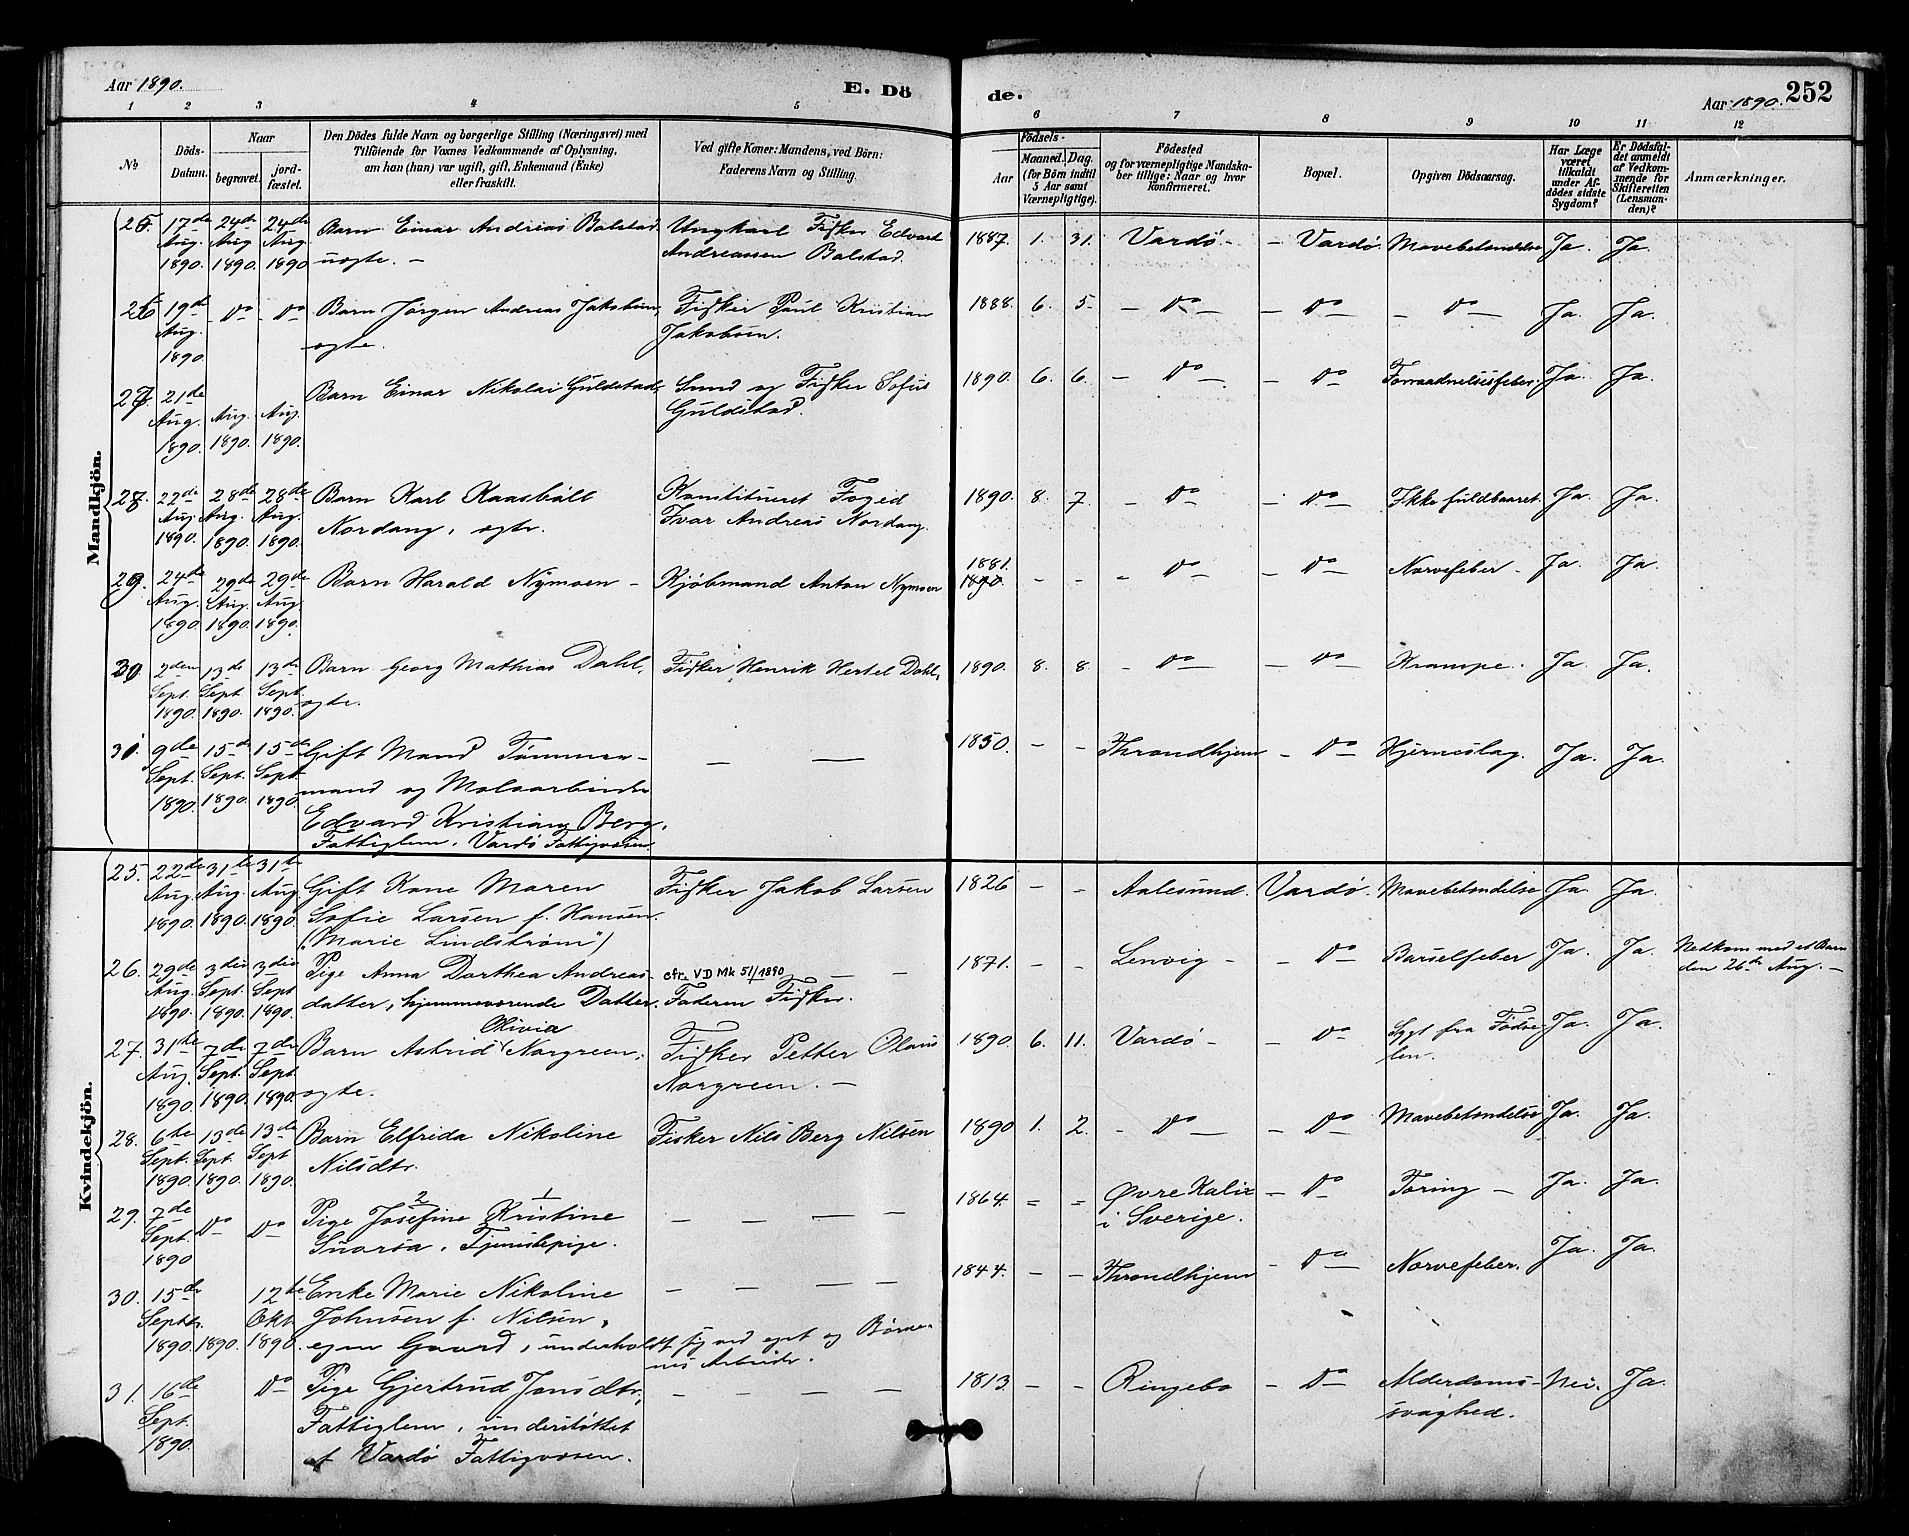 Aar 1890.
E. Dö
de.
Aar 1890.
252
1 2 3 4 5 6 7 8 9 10 11 12
No
Döds-
Datum.
Naar
begravet.
jord-
fæstet.
Den Dödes fulde Navn og borgerlige Stilling (Næringsvei) med
Tilföiende for Voxnes Vedkommende af Oplysning,
om han (han) var ugift, gift, Enkemand (Enke)
eller fraskilt.
Ved gifte Koner: Mandens, ved Börn:
Faderens Navn og Stilling.
Födsels-
Aar
Maaned. Dag.
(for Börn indtil
5 Aar samt
Værnepligtige).
Födested
og for værnepligtige Mandska-
ber tillige: Naar og hvor
konfirmeret.
Bopæl.
Opgiven Dödsaarsag.
Har Læge
været
tilkaldt
under Af-
dödes sidste
Sygdom?
Er Dödsfal-
det anmeldt
af Vedkom-
mende for
Skifteretten
(Lensman-
den)?
Anmærkninger.
Mandkjön.
25. 17de Aug. 1890. 24de Aug 1890. 24de Aug 1890 Barn Einar Andreas Balstad uægte. – Ungkarl Fisker Edvard Andreassen Balstad. 1887. 1. 31. Vardø. – Vardø. Mavebetændelse Ja. Ja.
26 19de Aug. 1890. Do Do Barn Jørgen Andreas Jakobsen, ægte. Fisker Paul Kristian Jakobsen. 1888. 6. 5. Do Do Do Ja. Ja.
27. 21de Aug. 1890. Aug. 1890. Aug. 1890. Barn Einar Nikolai Guldstad, Smed og Fisker Sofus Guldstad. 1890. 6. 6. Do Do Forraadnelsesfeber. Ja. Ja.
28. 22de Aug. 1890. 28de Aug. 1890. 28de Aug. 1890. Barn Karl Kaasbøll Nordang, ægte. Konstitueret Foged Ivar Andreas Nordang. 1890. 8. 7. Do Do Ikke fuldbaaret. Ja. Ja.
29. 24de Aug. 1890. 29de Aug. 1890. 29de Aug. 1890. Barn Harald Nymoen – Kjøbmand Anton Nymoen 1881. 1890. – – Do Do Nervefeber – Ja. Ja.
30 2den Sept. 1890. 13de Sept 1890. 13de Sept. 1890. Barn Georg Mathias Dahl, ægte. Fisker Henrik Hertel Dahl, 1890. 8. 8. Do Do Krampe. Ja. Ja.
31 9de Sept. 1890. 15de Sept. 1890. 15de Sept. 1890. Gift Mand Tømmer-
mand og Malearbeider
Edvard Kristian Berg,
Fattiglem. Vardø Fattigvæsen. – – 1850. – – Throndhjem Do Hjerneslag. Ja. Ja.
Kvindekjön.
25. 22de Aug. 1890. 31te Aug. 1890. 31te Aug 1890. Gift Kone Maren
Sofie Larsen f. Hansen.
("Marie Lindstrøm") Fisker Jakob Larsen 1826 – – Aalesund. Vardø. Mavebetændelse Ja. Ja.
26. 29de Aug. 1890. 3die Sept. 1890. 3die Sept 1890. Pige Anna Dorthea Andreas-
datter, hjemmeværende Datter. cfr. VD Mk 51/1890 Faderen Fisker. 1871. – – Lenvig – Do Barselfeber Ja. Ja. Nedkom med et Barn
den 26de Aug. –
27. 31te Aug. 1890. 7de Sept. 1890. 7de Sept. 1890. Barn Astrid Olivia Norgreen, ægte. Fisker Petter Olaus Norgreen. – 1890. 6. 11. Vardø – Do Sygt fra Fødse-
len. Ja. Ja.
28. 6te Sept. 1890. 13de Sept. 1890. 13de Sept 1890. Barn Elfrida Nikoline
Nilsdtr. Fisker Nils Berg Nilsen 1890 1. 2. Do Do Mavebetændelse Ja. Ja.
29. 7de Sept. 1890 Do Do Pige Josefine 2 Kristine 1
Snarsa. Tjenestepige. – – – – 1864. – – Øvre Kalix
i Sverige. Do Tæring – Ja. Ja.
30. 15de Septbr. 1890. 1890. 12te Okt 1890. Enke Marie Nikoline
Johnsen f. Nilsen,
egen Gaard, underholdt sig ved eget og Børne-
nes Arbeide. – – – – 1844. – – Throndhjem Do Nervefeber. Ja. Ja.
31. 16de Sept. 1890. Do Pige Gjertrud Jonsdtr,
Fattiglem, understøttet
af Vardø Fattigvæsen. – – – – 1813. – – Ringebo Do Alderdoms-
svaghed. Nei. Ja.